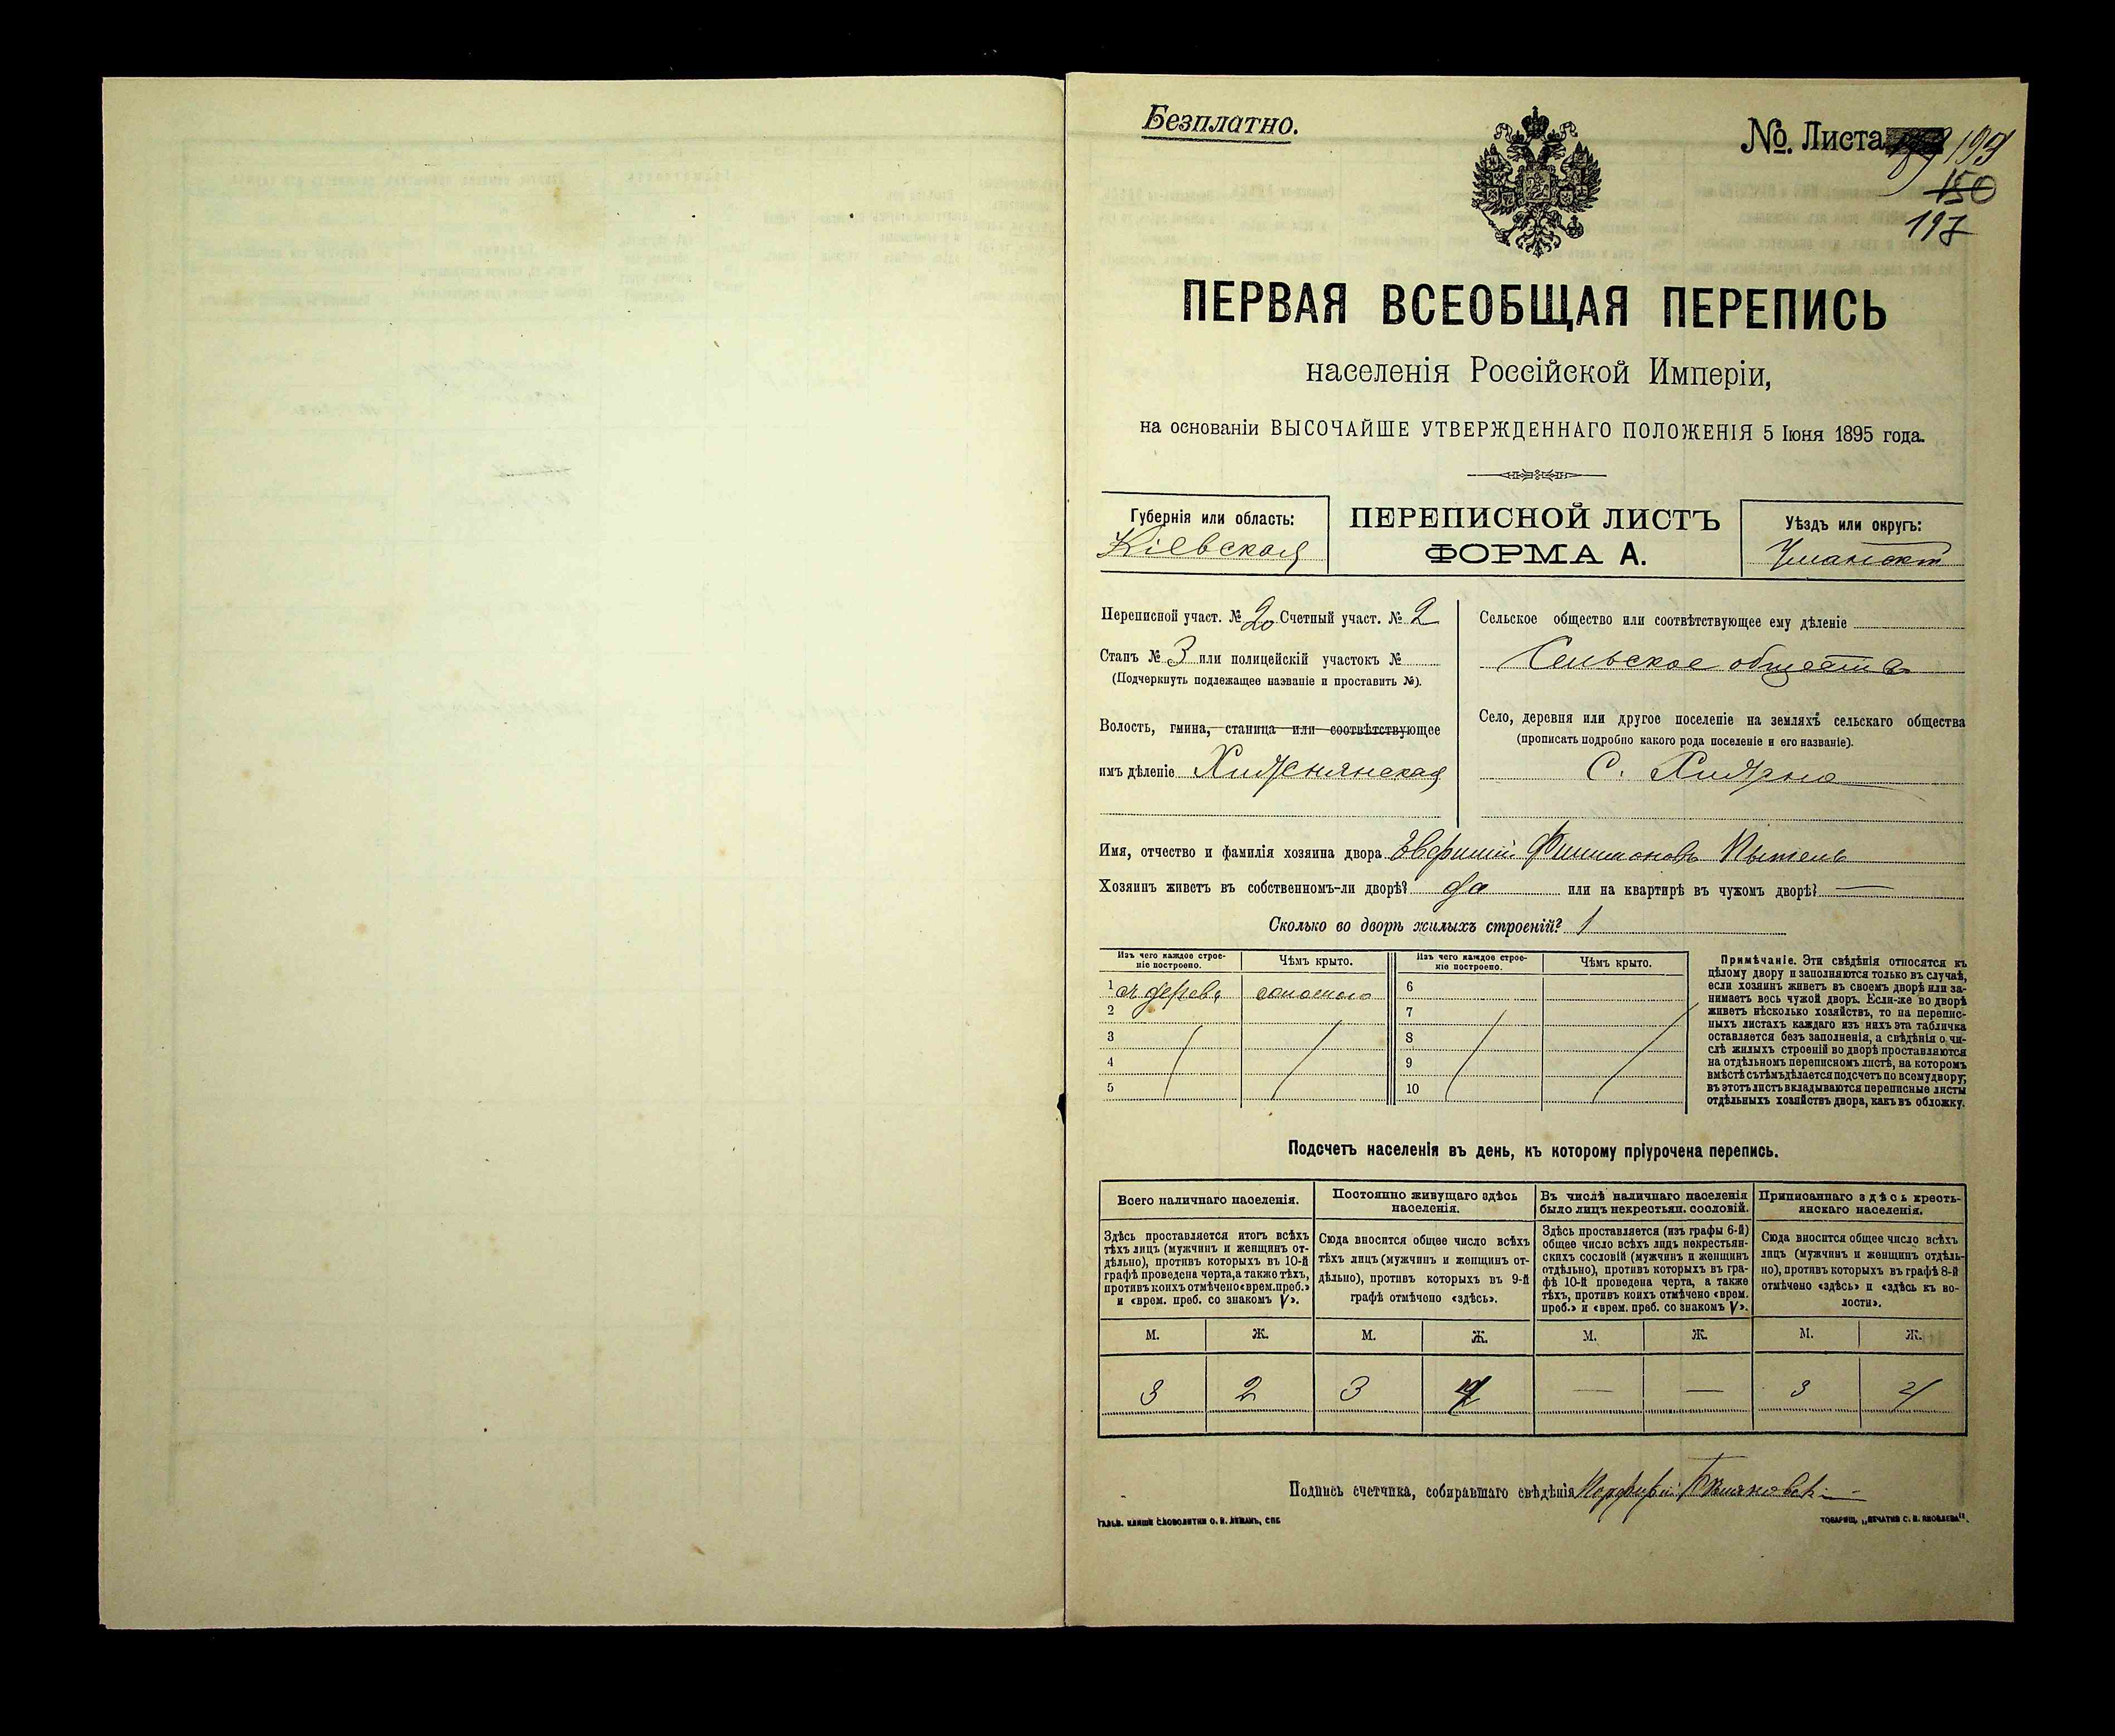 Безплатно.
№. Листа 199
150
197
ПЕРВАЯ ВСЕОБЩАЯ ПЕРЕПИСЬ
населенія Россійской Имперіи,
на основаніи ВЫСОЧАЙШЕ УТВЕРЖДЕННАГО ПОЛОЖЕНІЯ 5 Іюня 1895 года.
Губернія или область:
Кіевская
ПЕРЕПИСНОЙ ЛИСТЪ
ФОРМА А.
Уѣздъ или округъ:
Переписной участ. № 20 Счетный участ. № 2
Станъ № 3 или полицейскій участокъ №
(Подчеркнуть подлежащее названіе и проставить №).
Волость, гмина, станица или соотвѣтствующее
имъ дѣленіе
Сельское общество или соотвѣтствующее ему дѣленіе
Сельское общество
Село, деревня или другое поселеніе на земляхъ сельскаго общества
(прописать подробно какого рода поселеніе и его названіе).
С.
Имя, отчество и фамилія хозяина двора Филимоновъ
Хозяинъ живетъ въ собственномъ-ли дворѣ? да или на квартирѣ въ чужомъ дворѣ? —
Сколько во дворѣ жилыхъ строеній? 1
Изъ чего каждое строе-
ніе построено.
Чѣмъ крыто.
Изъ чего каждое строе-
ніе построено.
Чѣмъ крыто.
1 дерева соломою 6
2 7
3 8
4 9
5 10
Примѣчаніе. Эти свѣдѣнія относятся къ
цѣлому двору и заполняются только въ случаѣ,
если хозяинъ живетъ въ своемъ дворѣ или за-
нимаетъ весь чужой дворъ. Если-же во дворѣ
живетъ нѣсколько хозяйствъ, то на перепис-
ныхъ листахъ каждаго изъ нихъ эта табличка
оставляется безъ заполненія, а свѣдѣнія о чи-
слѣ жилыхъ строеній во дворѣ проставляются
на отдѣльномъ переписномъ листѣ, на которомъ
вмѣстѣ съ тѣмъ дѣлается подсчетъ по всему двору;
въ этотъ листъ вкладываются переписные листы
отдѣльныхъ хозяйствъ двора, какъ въ обложку.
Подсчетъ населенія въ день, къ которому пріурочена перепись.
Всего наличнаго населенія.
Здѣсь проставляется итогъ всѣхъ
тѣхъ лицъ (мужчинъ и женщинъ от-
дѣльно), противъ которыхъ въ 10-й
графѣ проведена черта, а также тѣхъ,
противъ коихъ отмѣчено «врем. преб.»
и «врем. преб. со знакомъ V».
Постоянно живущаго здѣсь
населенія.
Сюда вносится общее число всѣхъ
тѣхъ лицъ (мужчинъ и женщинъ от-
дѣльно), противъ которыхъ въ 9-й
графѣ отмѣчено «здѣсь».
Въ числѣ наличнаго населенія
было лицъ некрестьян. сословій.
Здѣсь проставляется (изъ графы 6-й)
общее число всѣхъ лицъ некрестьян-
скихъ сословій (мужчинъ и женщинъ
отдѣльно), противъ которыхъ въ гра-
фѣ 10-й проведена черта, а также
тѣхъ, противъ коихъ отмѣчено «врем.
преб.» и «врем. преб. со знакомъ V».
Приписаннаго здѣсь кресть-
янскаго населенія.
Сюда вносится общее число всѣхъ
лицъ (мужчинъ и женщинъ отдѣль-
но), противъ которыхъ въ графѣ 8-й
отмѣчено «здѣсь» и «здѣсь къ во-
лости».
М. Ж. М. Ж. М. Ж. М. Ж.
3 2 3 — — 3
Подпись счетчика, собиравшаго свѣдѣнія
ГАЛЬВ. КЛИШЕ СЛОВОЛИТНИ О. И. ЛЕМАНЪ, СПБ.
ТОВАРИЩ. „ПЕЧАТНЯ С. П. ЯКОВЛЕВА".